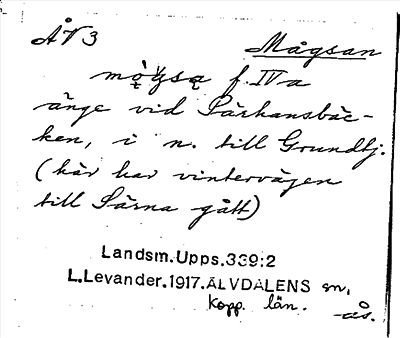 ÅV3
Mågsan
f. IV a
änge vid Särkansbäc-
ken, i n. till Grundtj.
(här har vintervägen
till Särna gått)
Landsm.Upps.339:2
L.Levander.1917.ÄLVDALENS sn,
Kopp. län.
-ås.